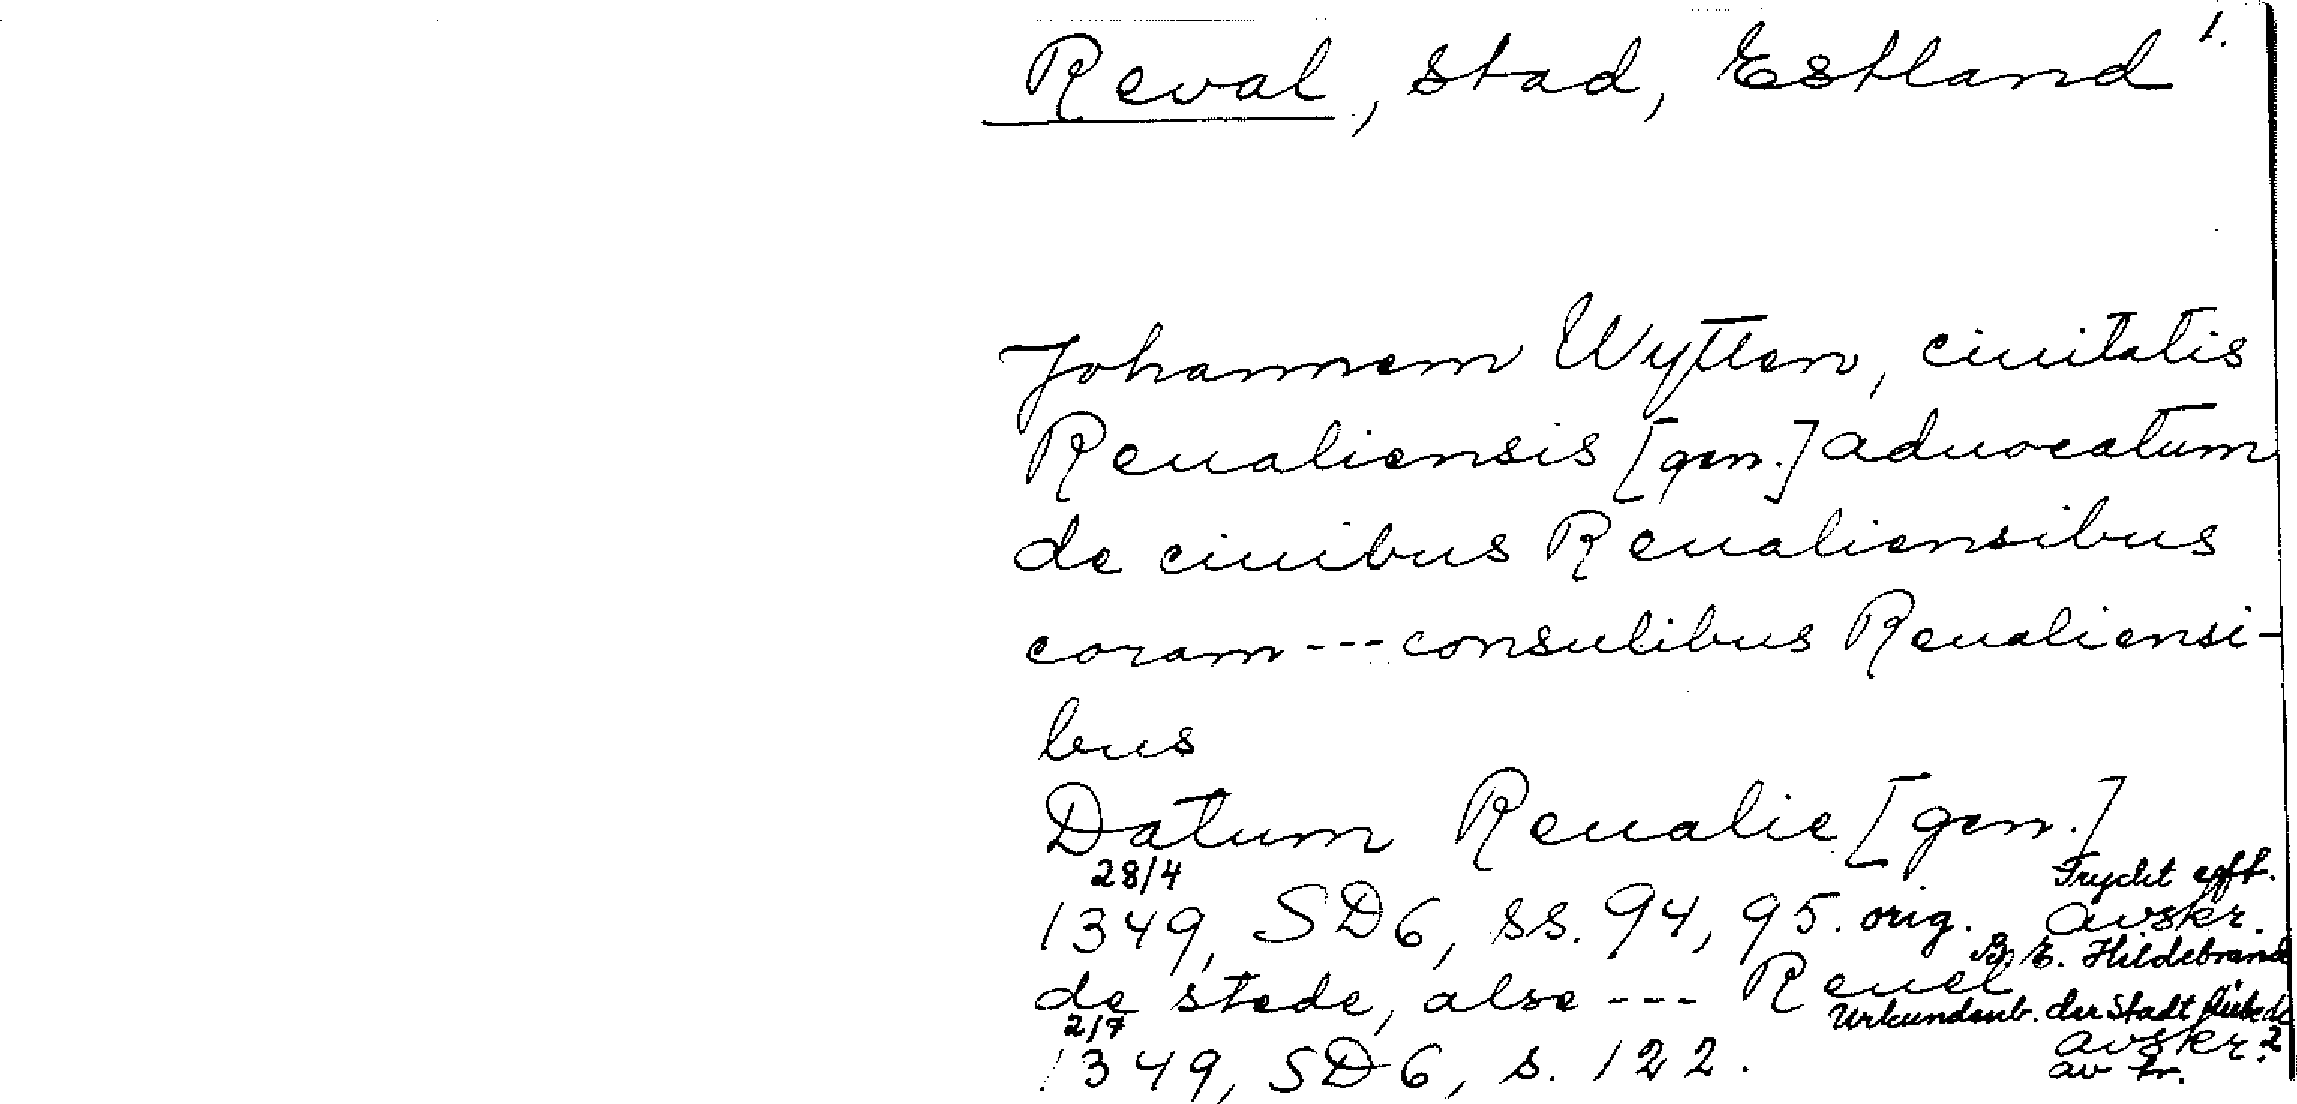 Reval, stad, Estland 1.
Johannem Wytten, ciuitatis
Reualiensis [gen.] aduocatum
de ciuibus Reualiensibus
coram --- consulibus Reualiensi-
bus
Datum Reualie [gen.]
28/4 Tryckt eft.
1349, SD6, ss. 94, 95. orig. avskr.
B. E. Hildebrand
de stede, alse --- Reuel
2/7 Urkundenb. der Stadt Lübeck 2
1349, SD6, s. 122. avskr.
av tr.